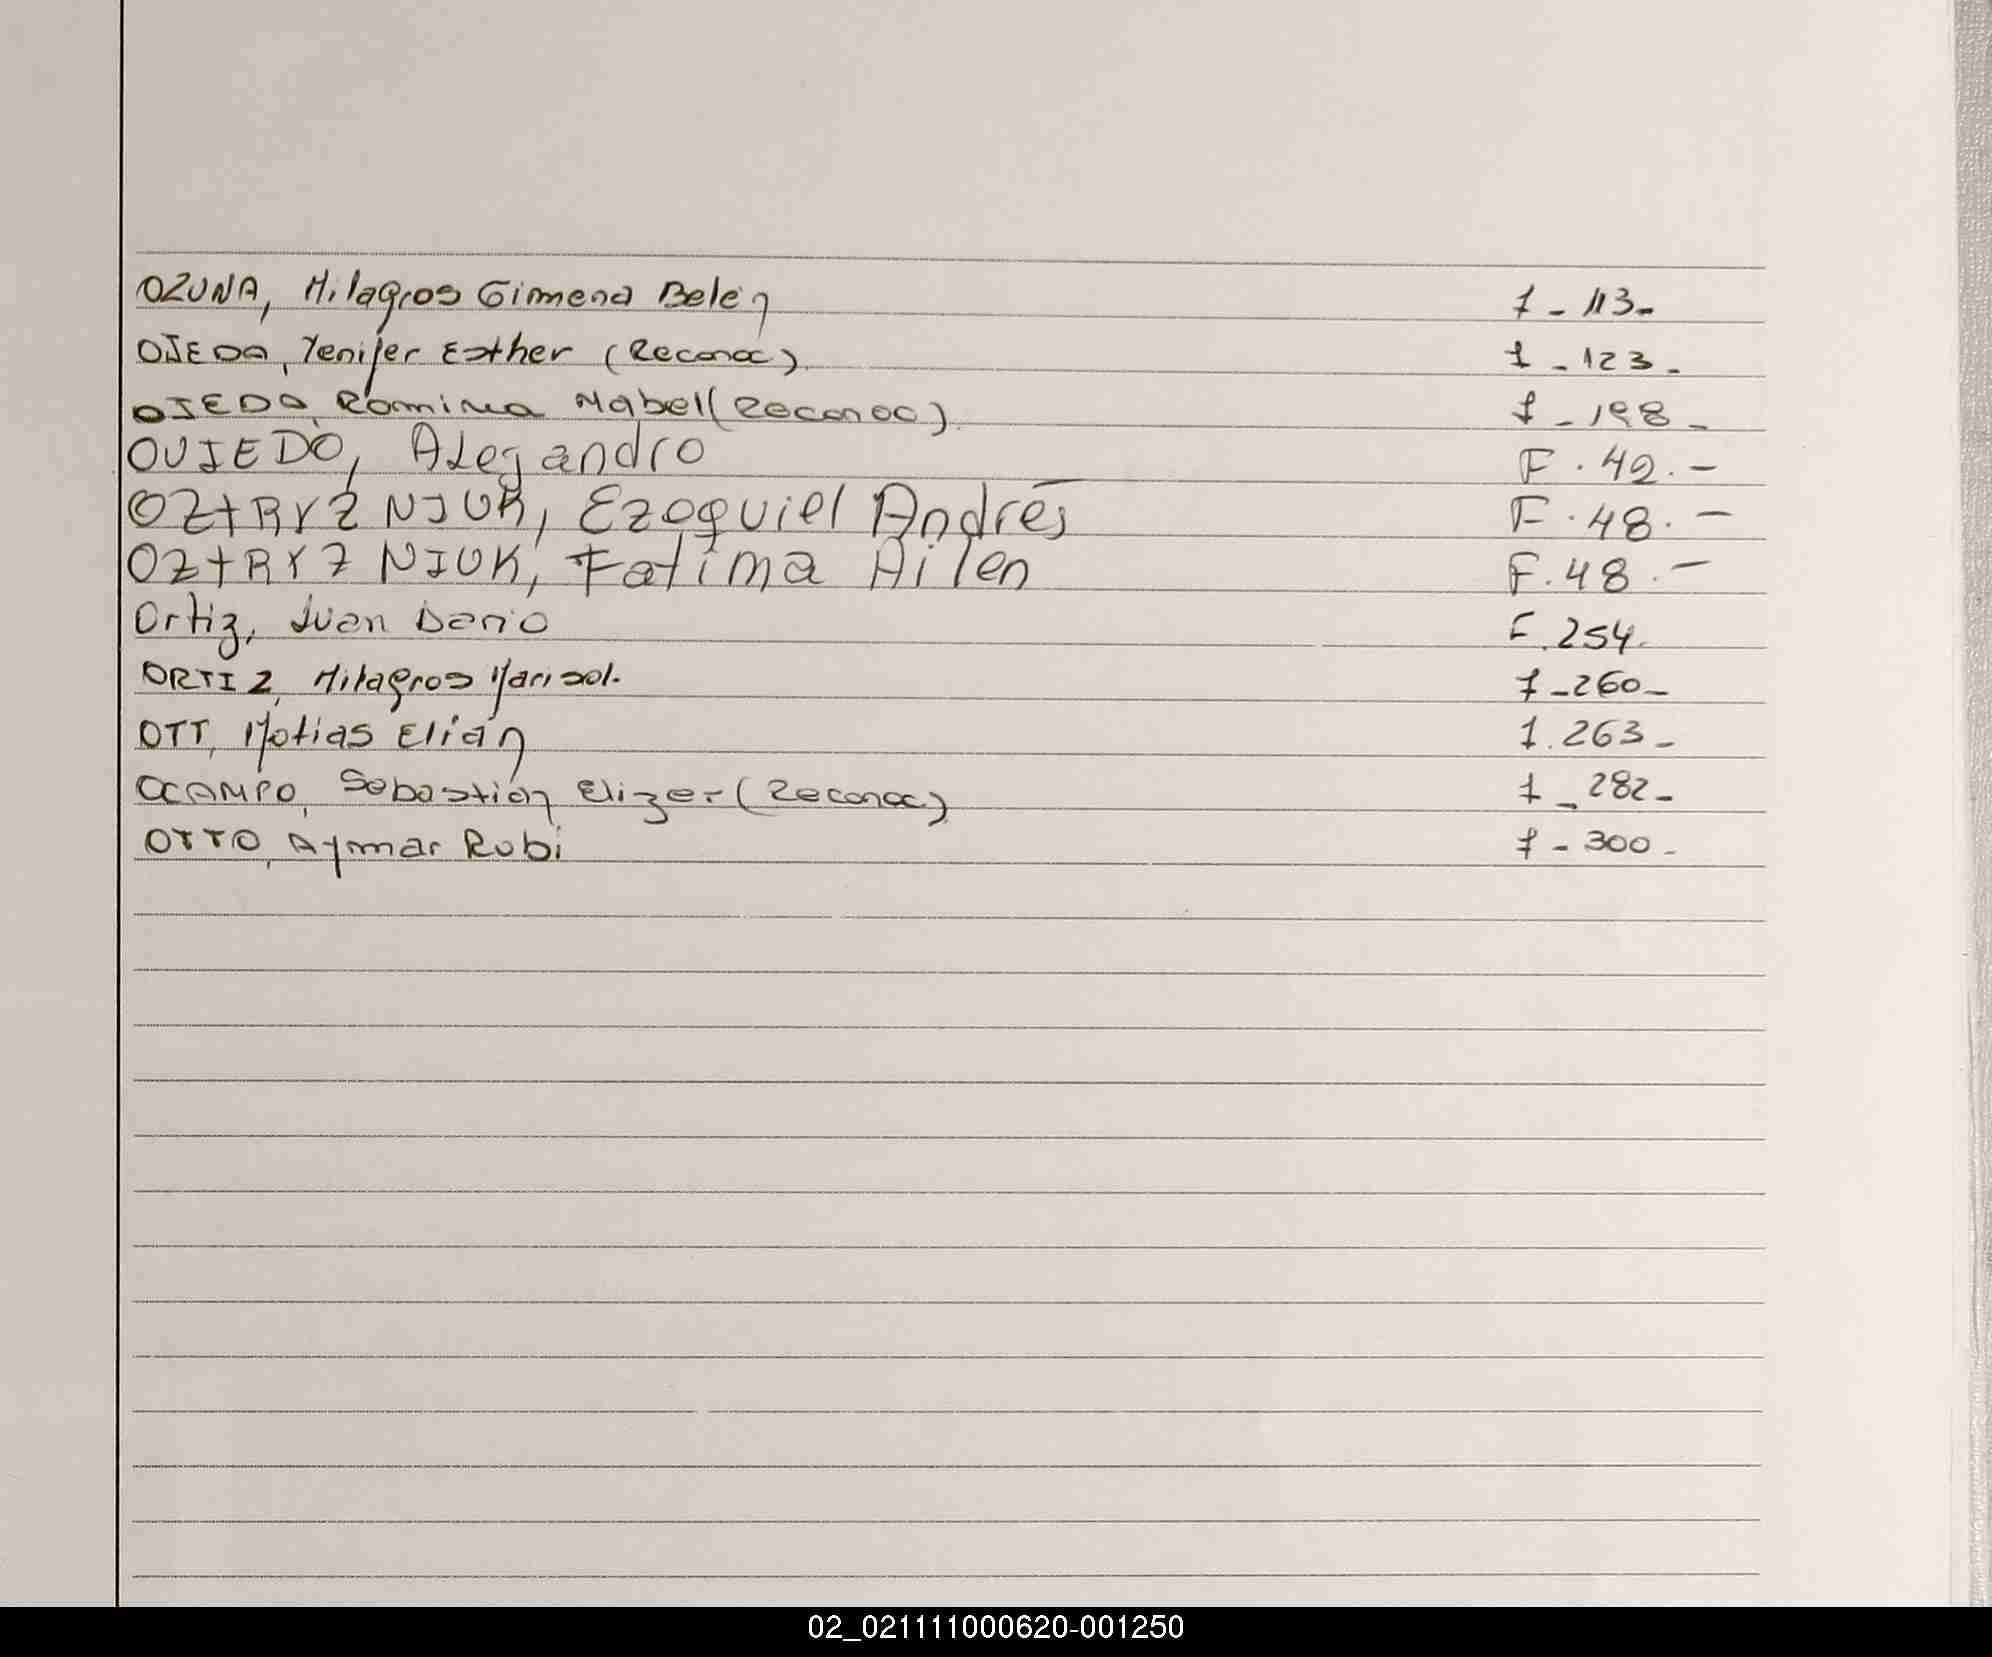 OZUNA, Milagros Gimena Belén f - 113 -
OJEDA, Yenifer Esther (Reconoc) f - 123 -
OJEDA, Romina Mabel (Reconoc) f - 198 -
OVIEDO, Alejandro F. 42. -
OZ+RYZ NIUK, Ezequiel Andrés F. 48. -
OZ+RYZ NIUK, Fatima Ailen F. 48. -
Ortiz, Juan Dario F. 254.
ORTIZ, Milagros Marisol. f - 260 -
OTT, Matias Elián f. 263 -
OCAMPO, Sebastián Elizer (Reconoc) f - 282 -
OTTO, Aymar Rubi f - 300 -
02_021111000620-001250